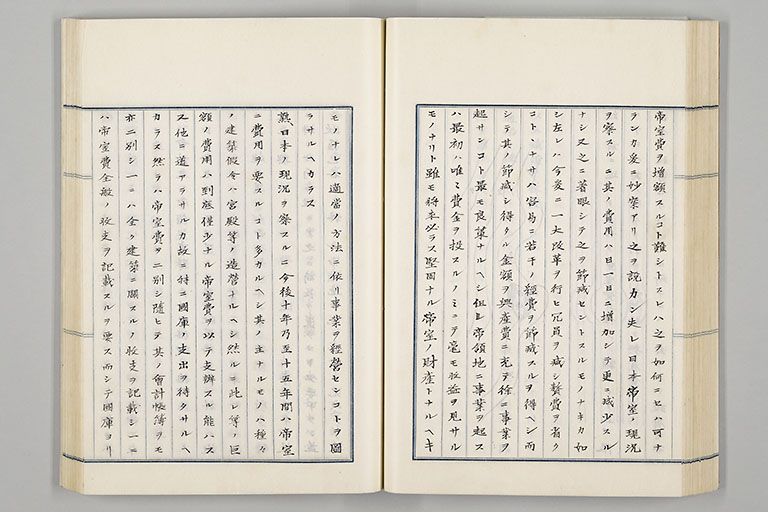 帝室費ヲ増額スルコト難シトスレハ之ヲ如何ニセハ可ナ
ランカ爰ニ妙案アリ之ヲ説カン夫レ日本帝室ノ現况
ヲ察スルニ其ノ費用ハ日一日ニ増加シテ更ニ减少スル
ナシ又之ニ著眼シテ之ヲ節减セントスルモノナキカ如
シ左レハ今爰ニ一大改革ヲ行ヒ冗員ヲ减シ贅費ヲ省ク
コトヽナサハ容易ニ若干ノ經費ヲ節减スルヲ得ヘシ而
シテ其ノ節减シ得タル金額ヲ興産費ニ充テ徐ニ事業ヲ
起サンコト最モ良策ナルヘシ但シ帝領地ニ事業ヲ起ス
ハ最初ハ唯ミ費金ヲ投スルノミニテ毫モ收益ヲ見サル
モノナリト雖モ将来必ラス堅固ナル帝室ノ財産トナルヘキ
モノナレハ適當ノ方法ニ依リ事業ヲ經營センコトヲ圖
ラサルヘカラス
熟、日本ノ現况ヲ察スルニ今後十年乃至十五年間ハ帝室
ニ費用ヲ要スルコト多カルヘシ其ノ主ナルモノハ種々
ノ建築假令ハ宮殿等ノ造營ナルヘシ然ルニ此レ等ノ巨
額ノ費用ハ到底僅少ナル帝室費ヲ以テ支辨スル能ハス
又他ニ道アラサルカ故ニ特ニ國庫ノ支出ヲ待タサルヘ
カラス然ラハ帝室費ヲ二別シ随ヒテ其ノ會計帳簿ヲモ
亦二別シ一ニハ全ク建築ニ關スルノ收支ヲ記載シ一ニ
ハ帝室費全般ノ收支ヲ記載スルヲ要ス而シテ國庫ヨリ